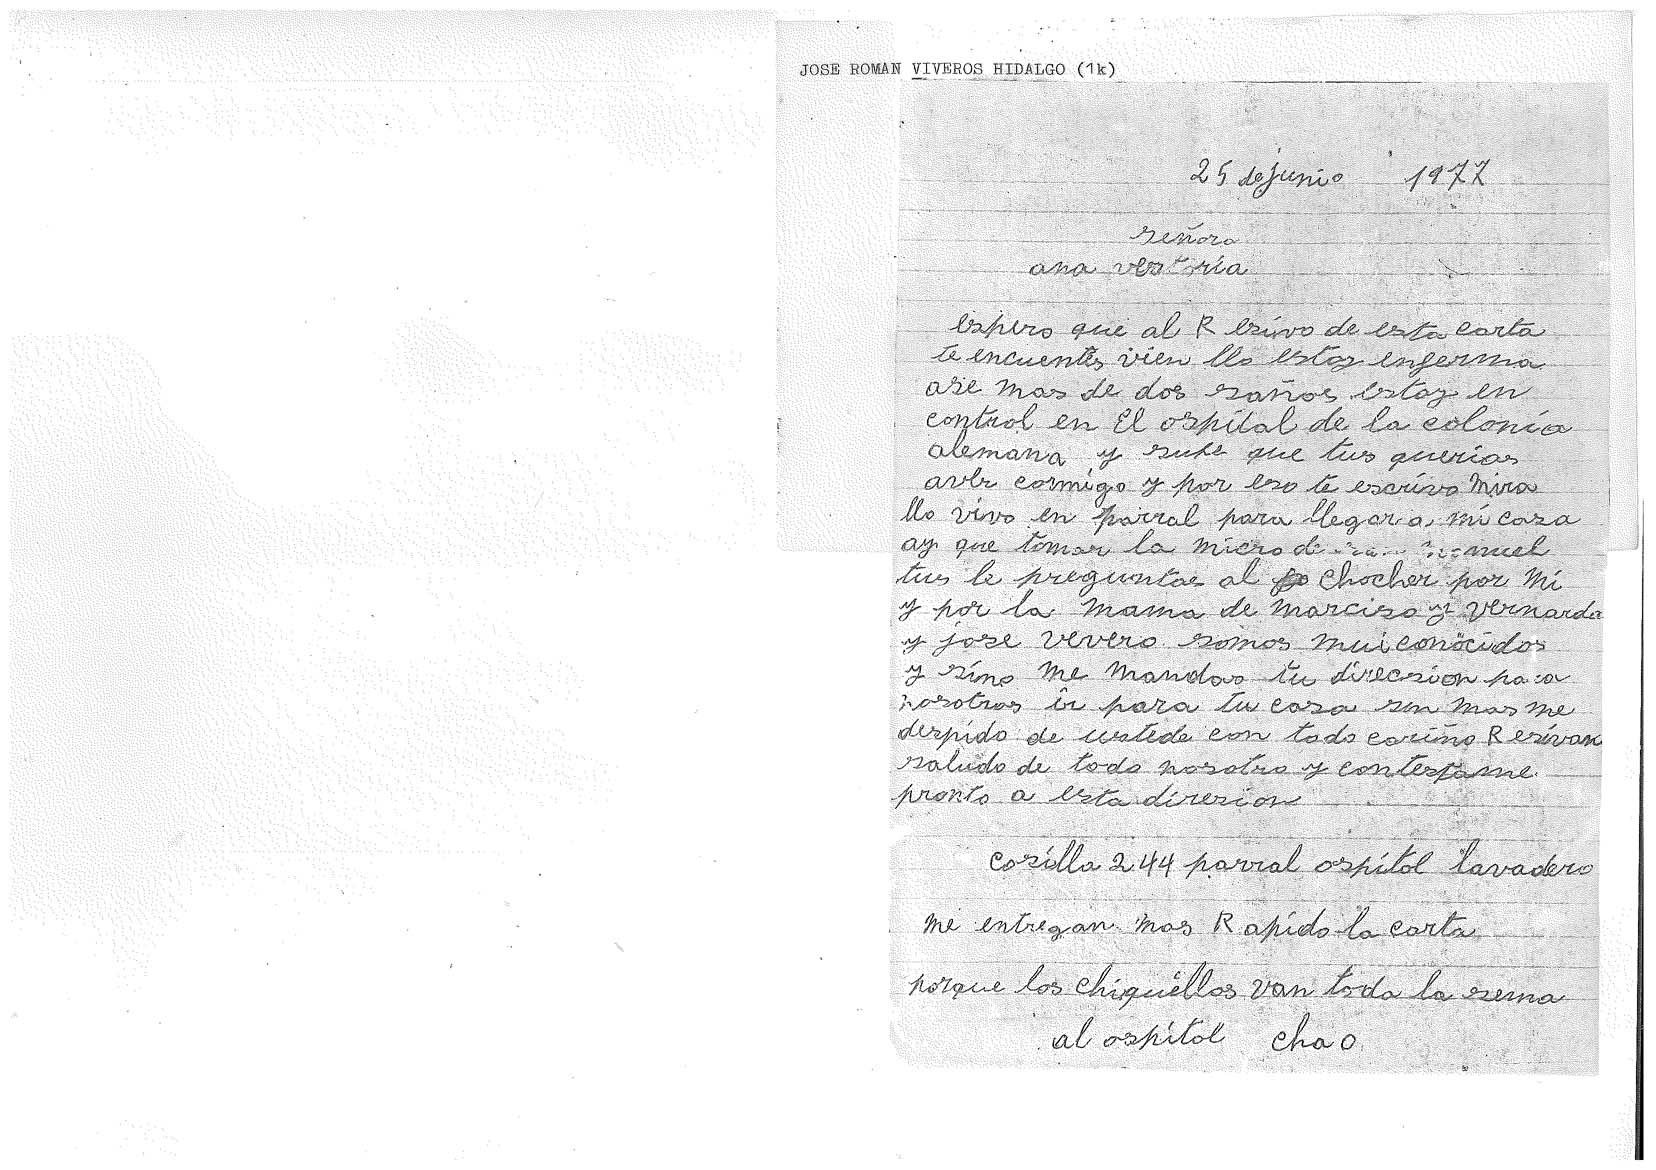 JOSE ROMAN VIVEROS HIDALGO (1k)
25 de junio 1977
señora
ana vestoria
Espero que al R esivo de esta carta
te encuentes vien llo estoy enferma
ase mas de dos sanos estoy en
control en El ospital de la colonia
alemana y supe que tus querias
avlr conmigo y por eso te escrivo Mira
llo vivo en parral para llegar a mi casa
ay que tomar la micro de
tus le preguntas al chocher por Mi
y por la Mama de Marciso y vernarda
y jose vevero somos mui conocidos
y sino Me Mandas tu direcsion para
nosotros ir para tu casa sin mas me
despido de ustede con todo cariño R esivan
saludo de todo nosotro y contestame
pronto a esta diresion
casilla 244 parral ospital lavadero
Me entregan mas R apido la carta
porque los chiquillos van toda la sema
al ospital chao